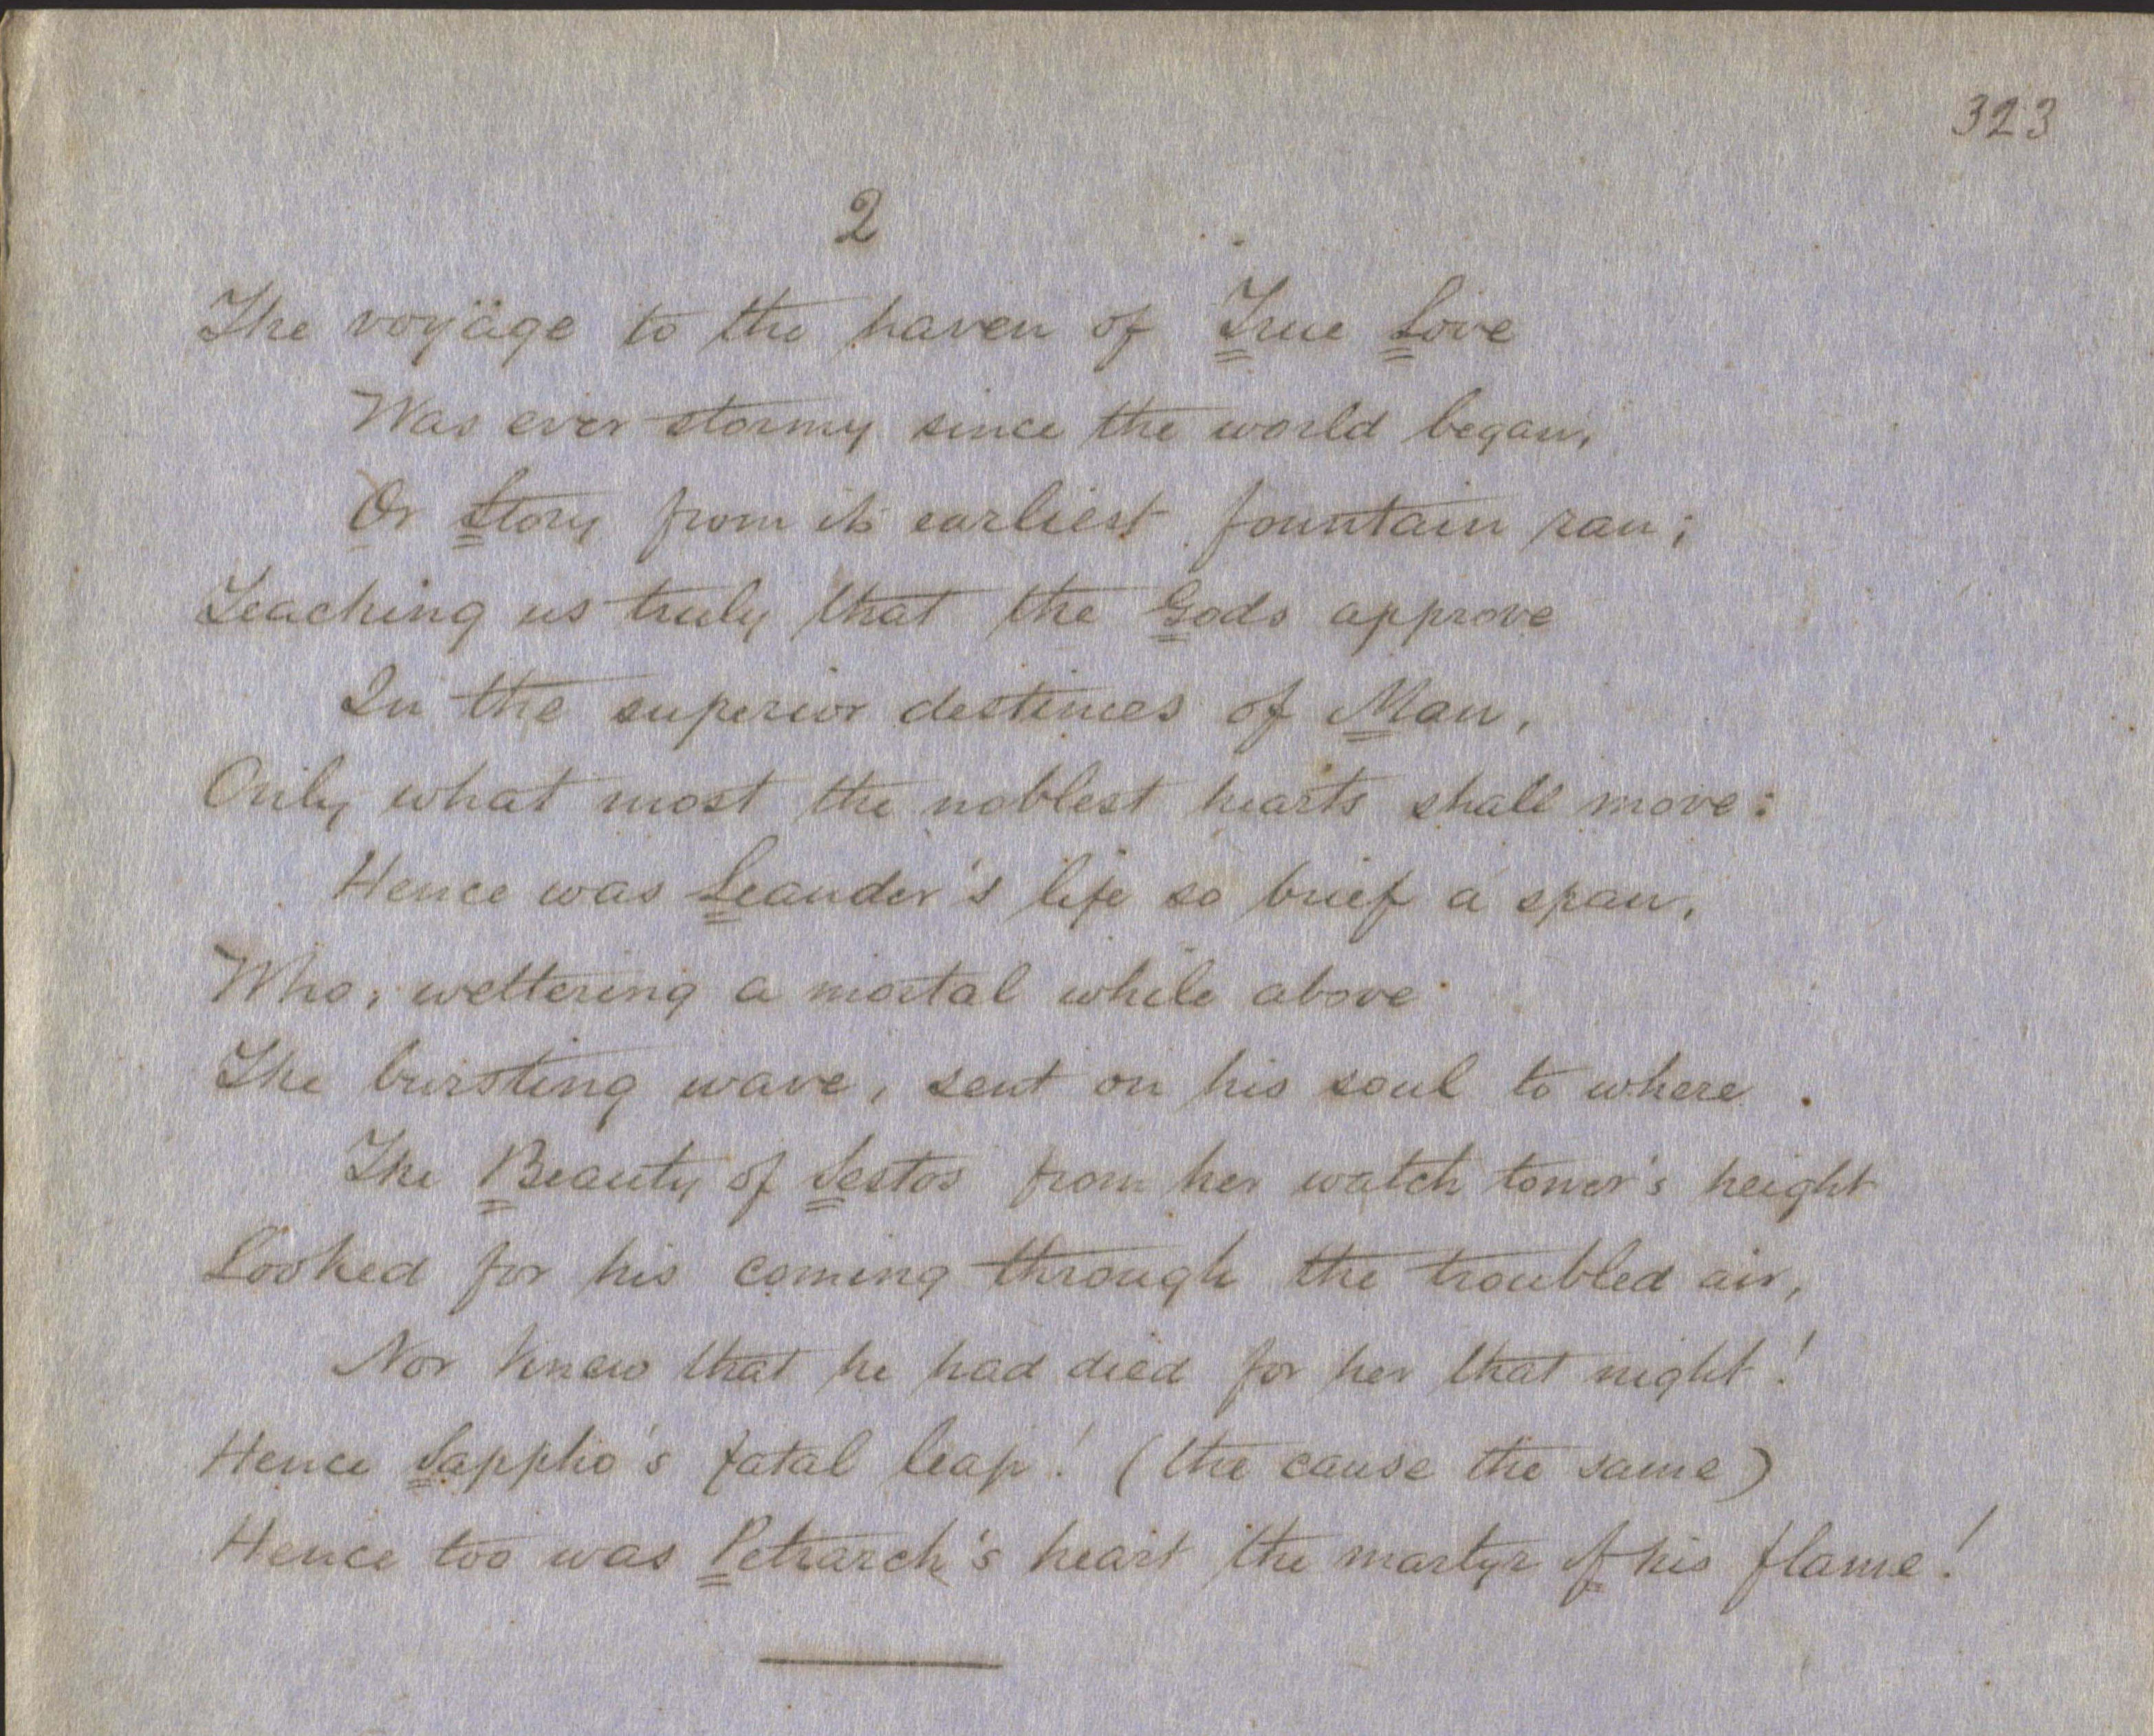 323
2
The voyäge to the haven of True Love
Was ever stormy since the world began,
Or Story from its earliest fountain ran;
Teaching us truly that the Gods approve
In the superior destinies of Man,
Only what most the noblest hearts shall move:
Hence was Leander's life so brief a span,
Who, weltering a mortal while above
The bursting wave, sent on his soul to where
The Beauty of Sestos from her watch tower's height
Looked for his coming through the troubled air,
Nor knew that he had died for her that night!
Hence Sappho's fatal leap! (the cause the same)
Hence too was Petrarch's heart the martyr of his flame!